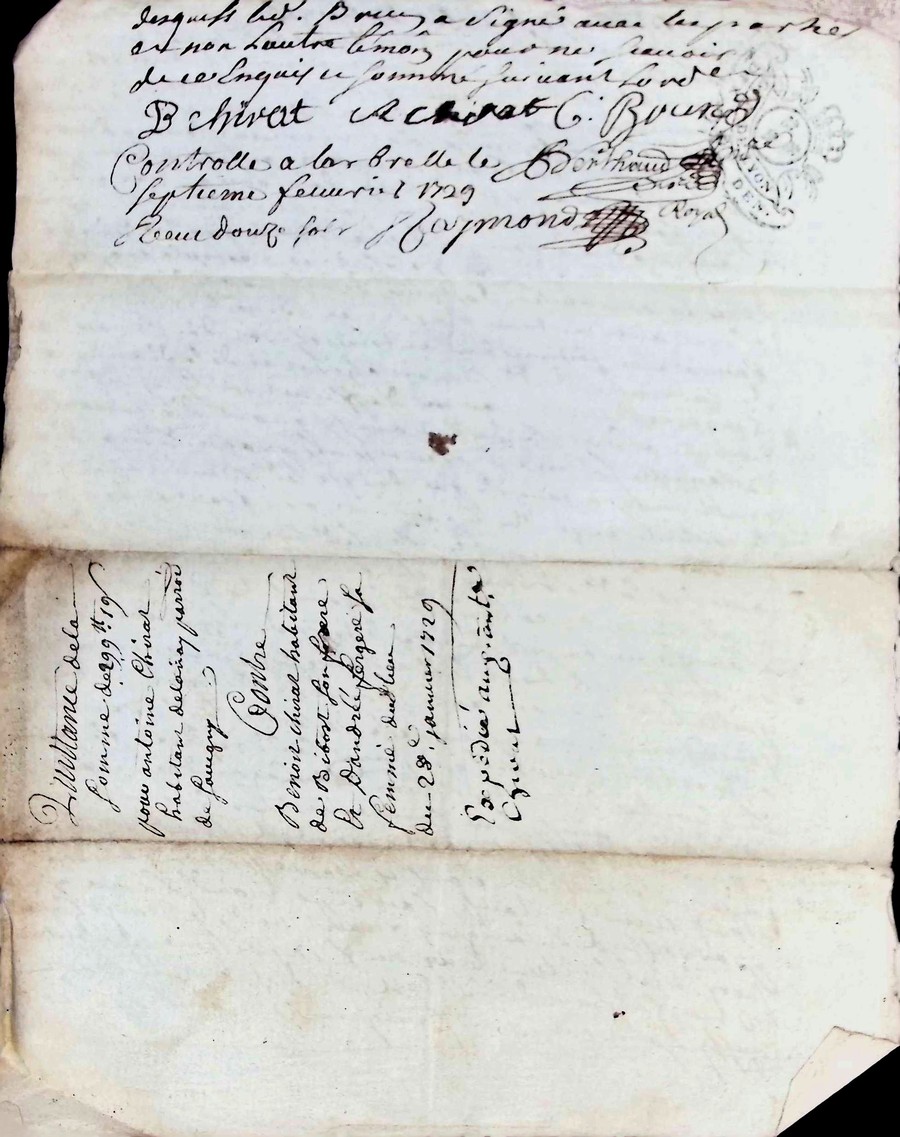 desquels led. Brun a signé avec les parties
et non l'autre témoin pour ne scavoir
de ce enquis et sommé suivant l'orde
B chirat A chirat C. Brun
Controlle a larbrelle le Berthaud
septieme feuvrier 1729
Receu douze sols Raymond Royal
LYON
Quittance de la
somme de 299 tt 19 s
pour antoine Chirat
habitant de parroi
de Savigny
Contre
Benoit chirat habitant
de Bibost son frere
Et D'andrée fergere sa
femme dud lieu
du 28e janvier 1729
Expedié aud. ant.
Chirat